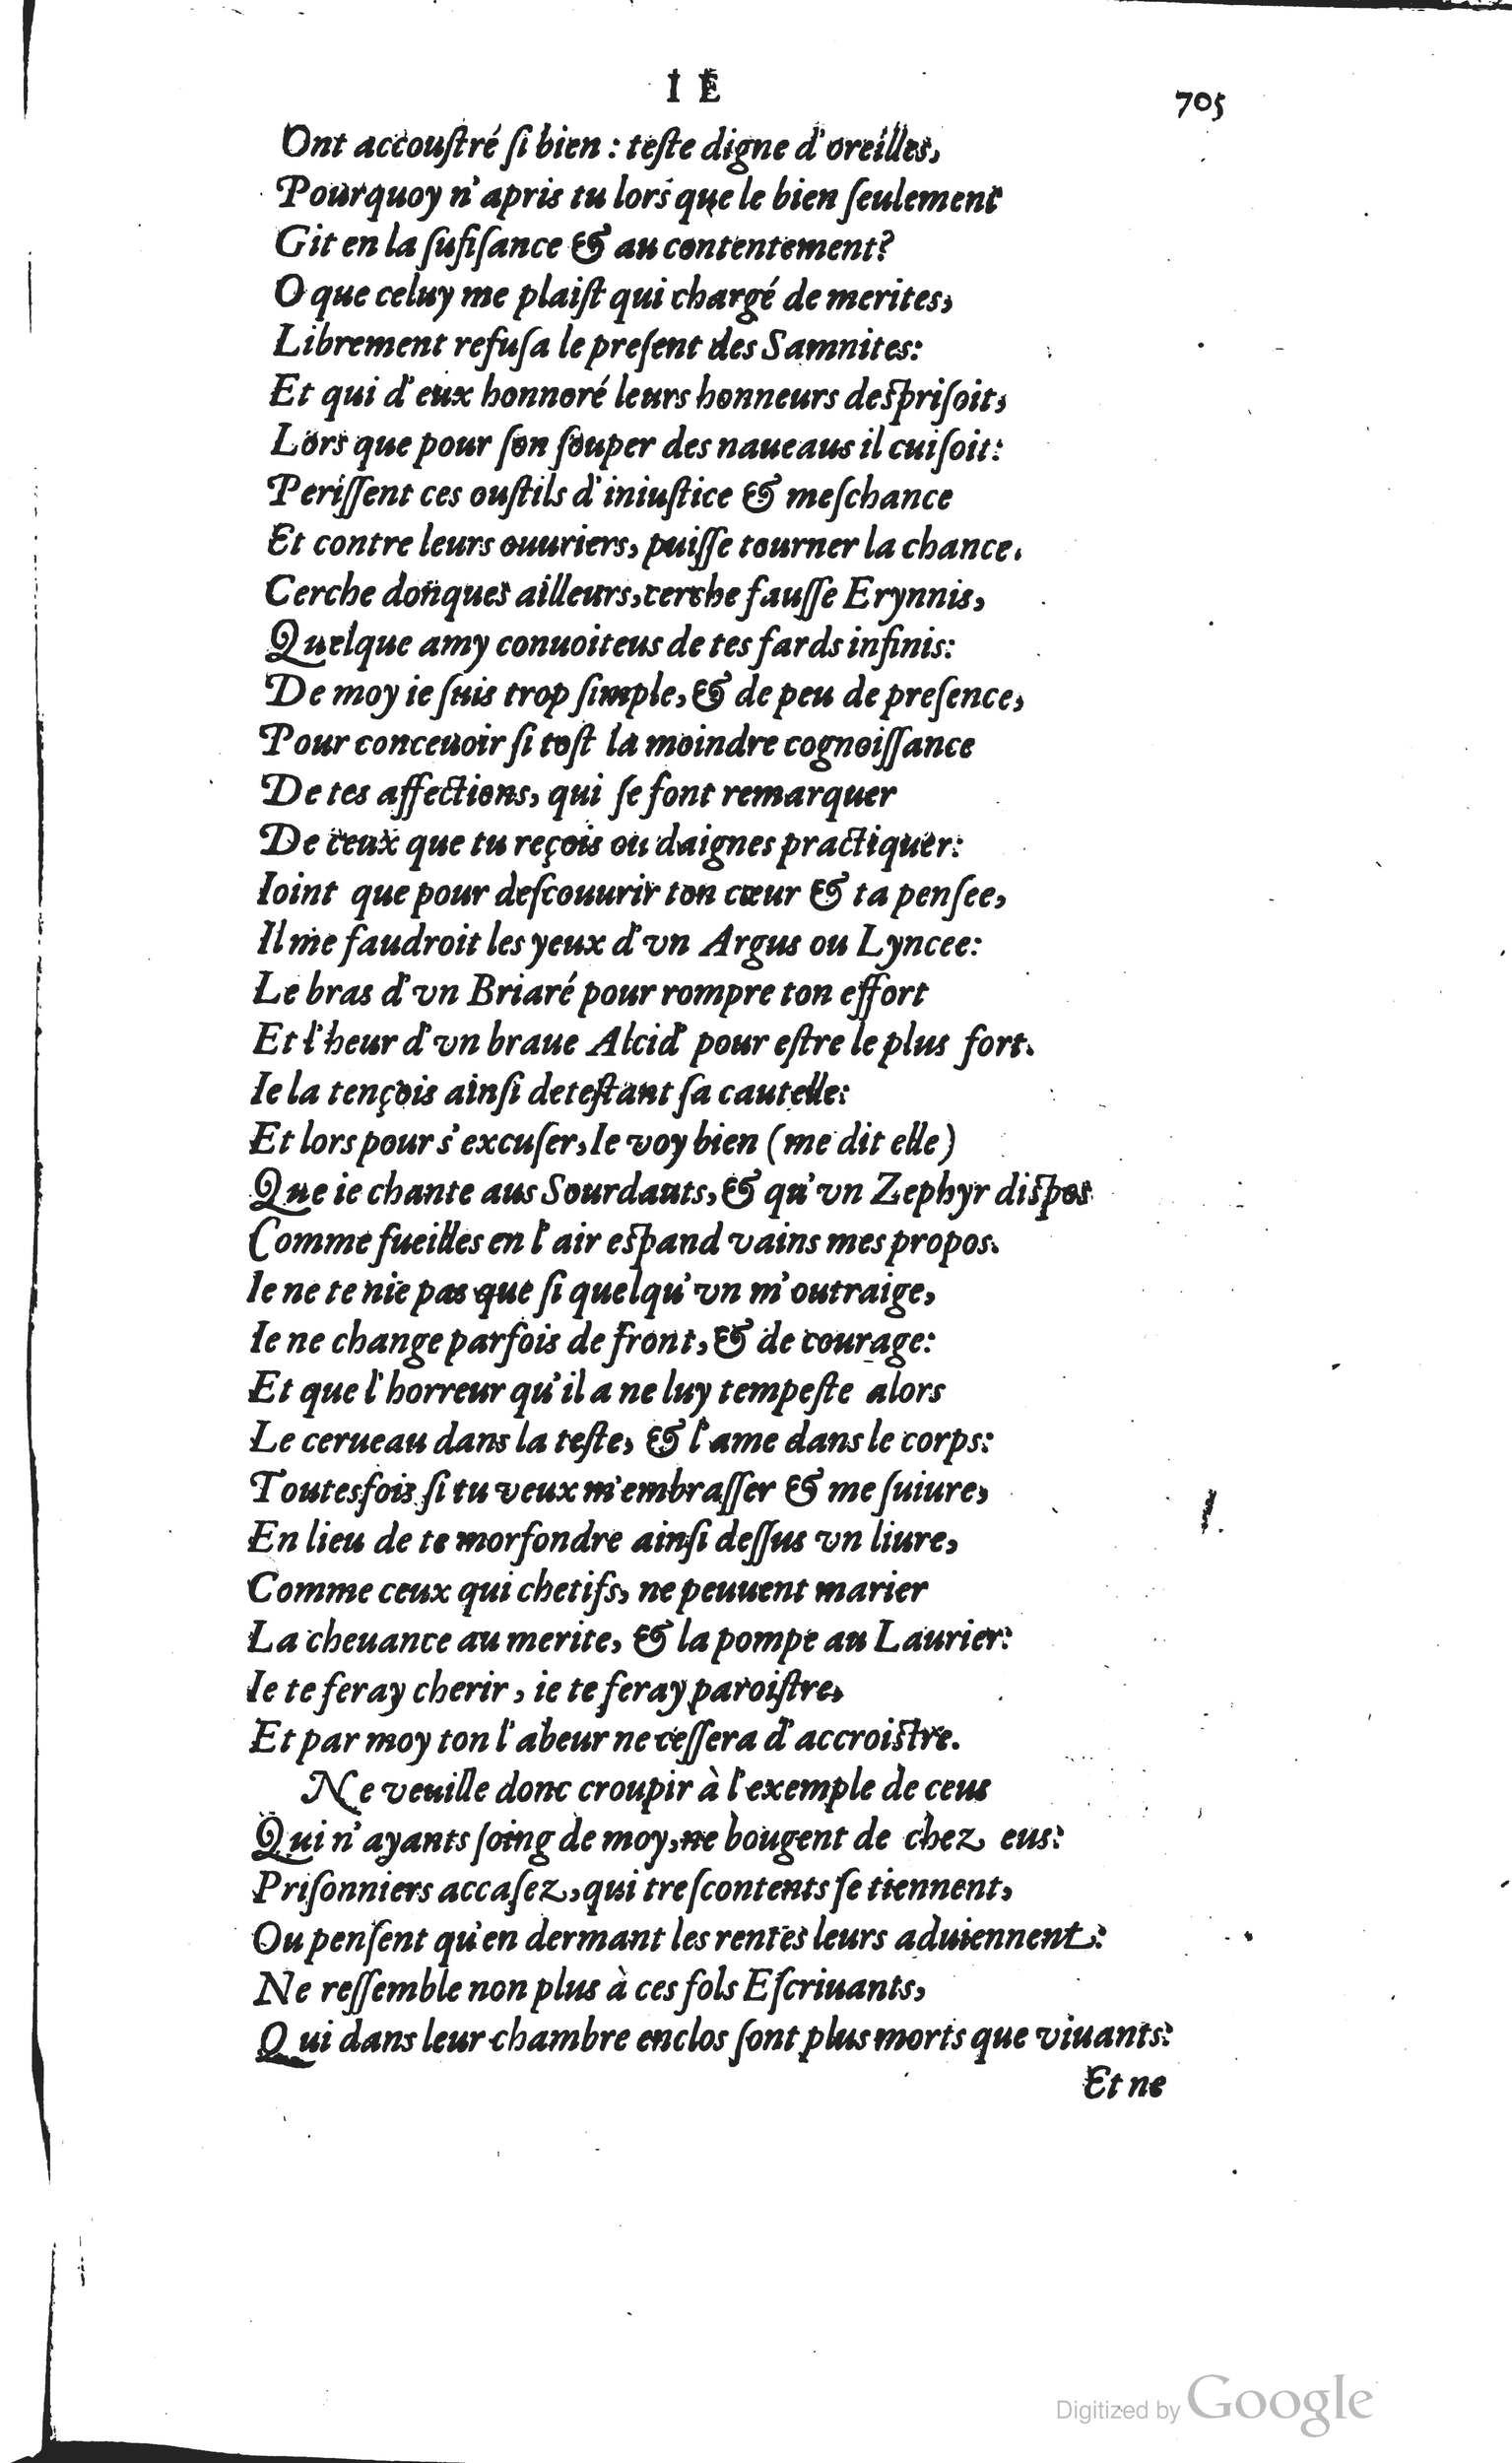 IE
705
Ont accouſtré ſi bien : teſte digne d'oreilles,
Pourquoy n'apris tu lors que le bien ſeulement
Git en la ſufiſance & au contentement?
O que celuy me plaiſt qui chargé de merites,
Librement refuſa le preſent des Samnites:
Et qui d'eux honnoré leurs honneurs deſpriſoit,
Lors que pour ſon ſouper des naueaus il cuiſoit:
Periſſent ces ouſtils d'iniuſtice & meſchance
Et contre leurs ouuriers, puiſſe tourner la chance.
Cerche donques ailleurs, cerche fauſſe Erynnis,
Quelque amy conuoiteus de tes fards infinis:
De moy ie ſuis trop ſimple, & de peu de preſence,
Pour conceuoir ſi toſt la moindre cognoiſſance
De tes affections, qui ſe font remarquer
De ceux que tu reçois ou daignes practiquer:
Ioint que pour deſcouurir ton cœur & ta penſee,
Il me faudroit les yeux d'vn Argus ou Lyncee:
Le bras d'vn Briaré pour rompre ton effort
Et l'heur d'vn braue Alcid' pour eſtre le plus fort.
Ie la tençois ainſi deteſtant ſa cautelle:
Et lors pour s'excuſer, Ie voy bien (me dit elle)
Que ie chante aus Sourdauts, & qu'vn Zephyr diſpos
Comme fueilles en l'air eſpand vains mes propos.
Ie ne te nie pas que ſi quelqu'vn m'outraige,
Ie ne change parfois de front, & de courage:
Et que l'horreur qu'il a ne luy tempeſte alors
Le cerueau dans la teſte, & l'ame dans le corps:
Toutesfois ſi tu veux m'embraſſer & me ſuiure,
En lieu de te morfondre ainſi deſſus vn liure,
Comme ceux qui chetifs, ne peuuent marier
La cheuance au merite, & la pompe au Laurier:
Ie te feray cherir, ie te feray paroiſtre,
Et par moy ton l'abeur ne ceſſera d'accroiſtre.
Ne veuille donc croupir à l'exemple de ceus
Qui n'ayants ſoing de moy, ne bougent de chez eus:
Priſonniers accaſez, qui treſcontents ſe tiennent,
Ou penſent qu'en dermant les rentes leurs aduiennent:
Ne reſſemble non plus à ces fols Eſcriuants,
Qui dans leur chambre enclos ſont plus morts que viuants:
Et ne
Digitized by Google